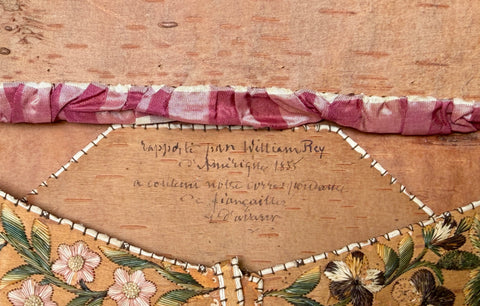 rapporté par William Rey
d'Amérique 1835
a contenu notre correspondance
de fiançailles
et d'avant